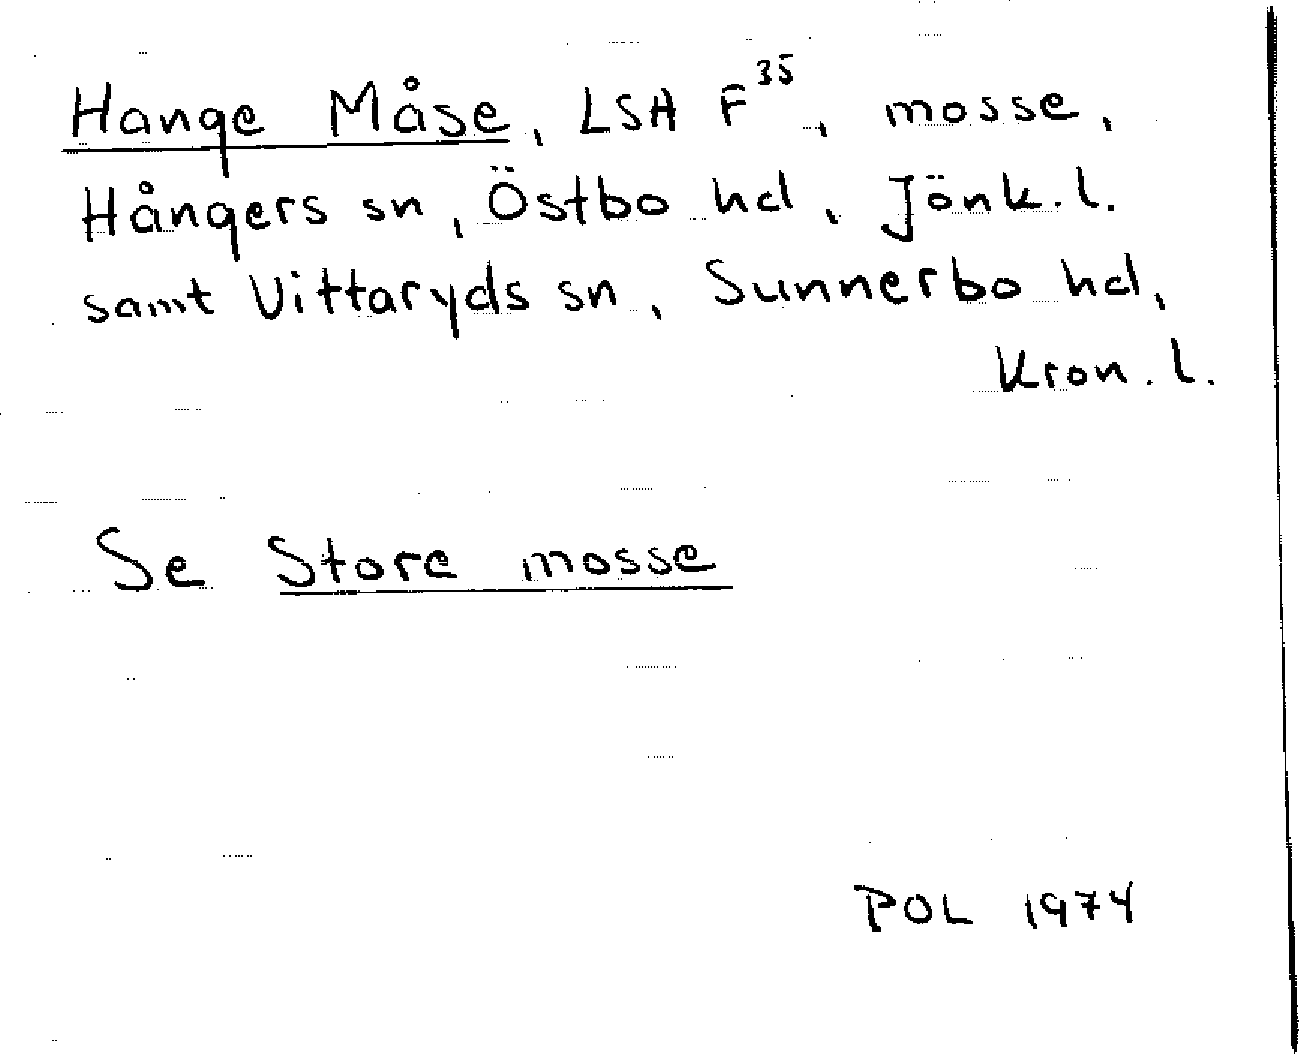 Hange Måse, LSA F³⁵, mosse,
Hångers sn, Östbo hd, Jönk.l.
samt Vittaryds sn, Sunnerbo hd,
Kron.l.
Se Store mosse
POL 1974